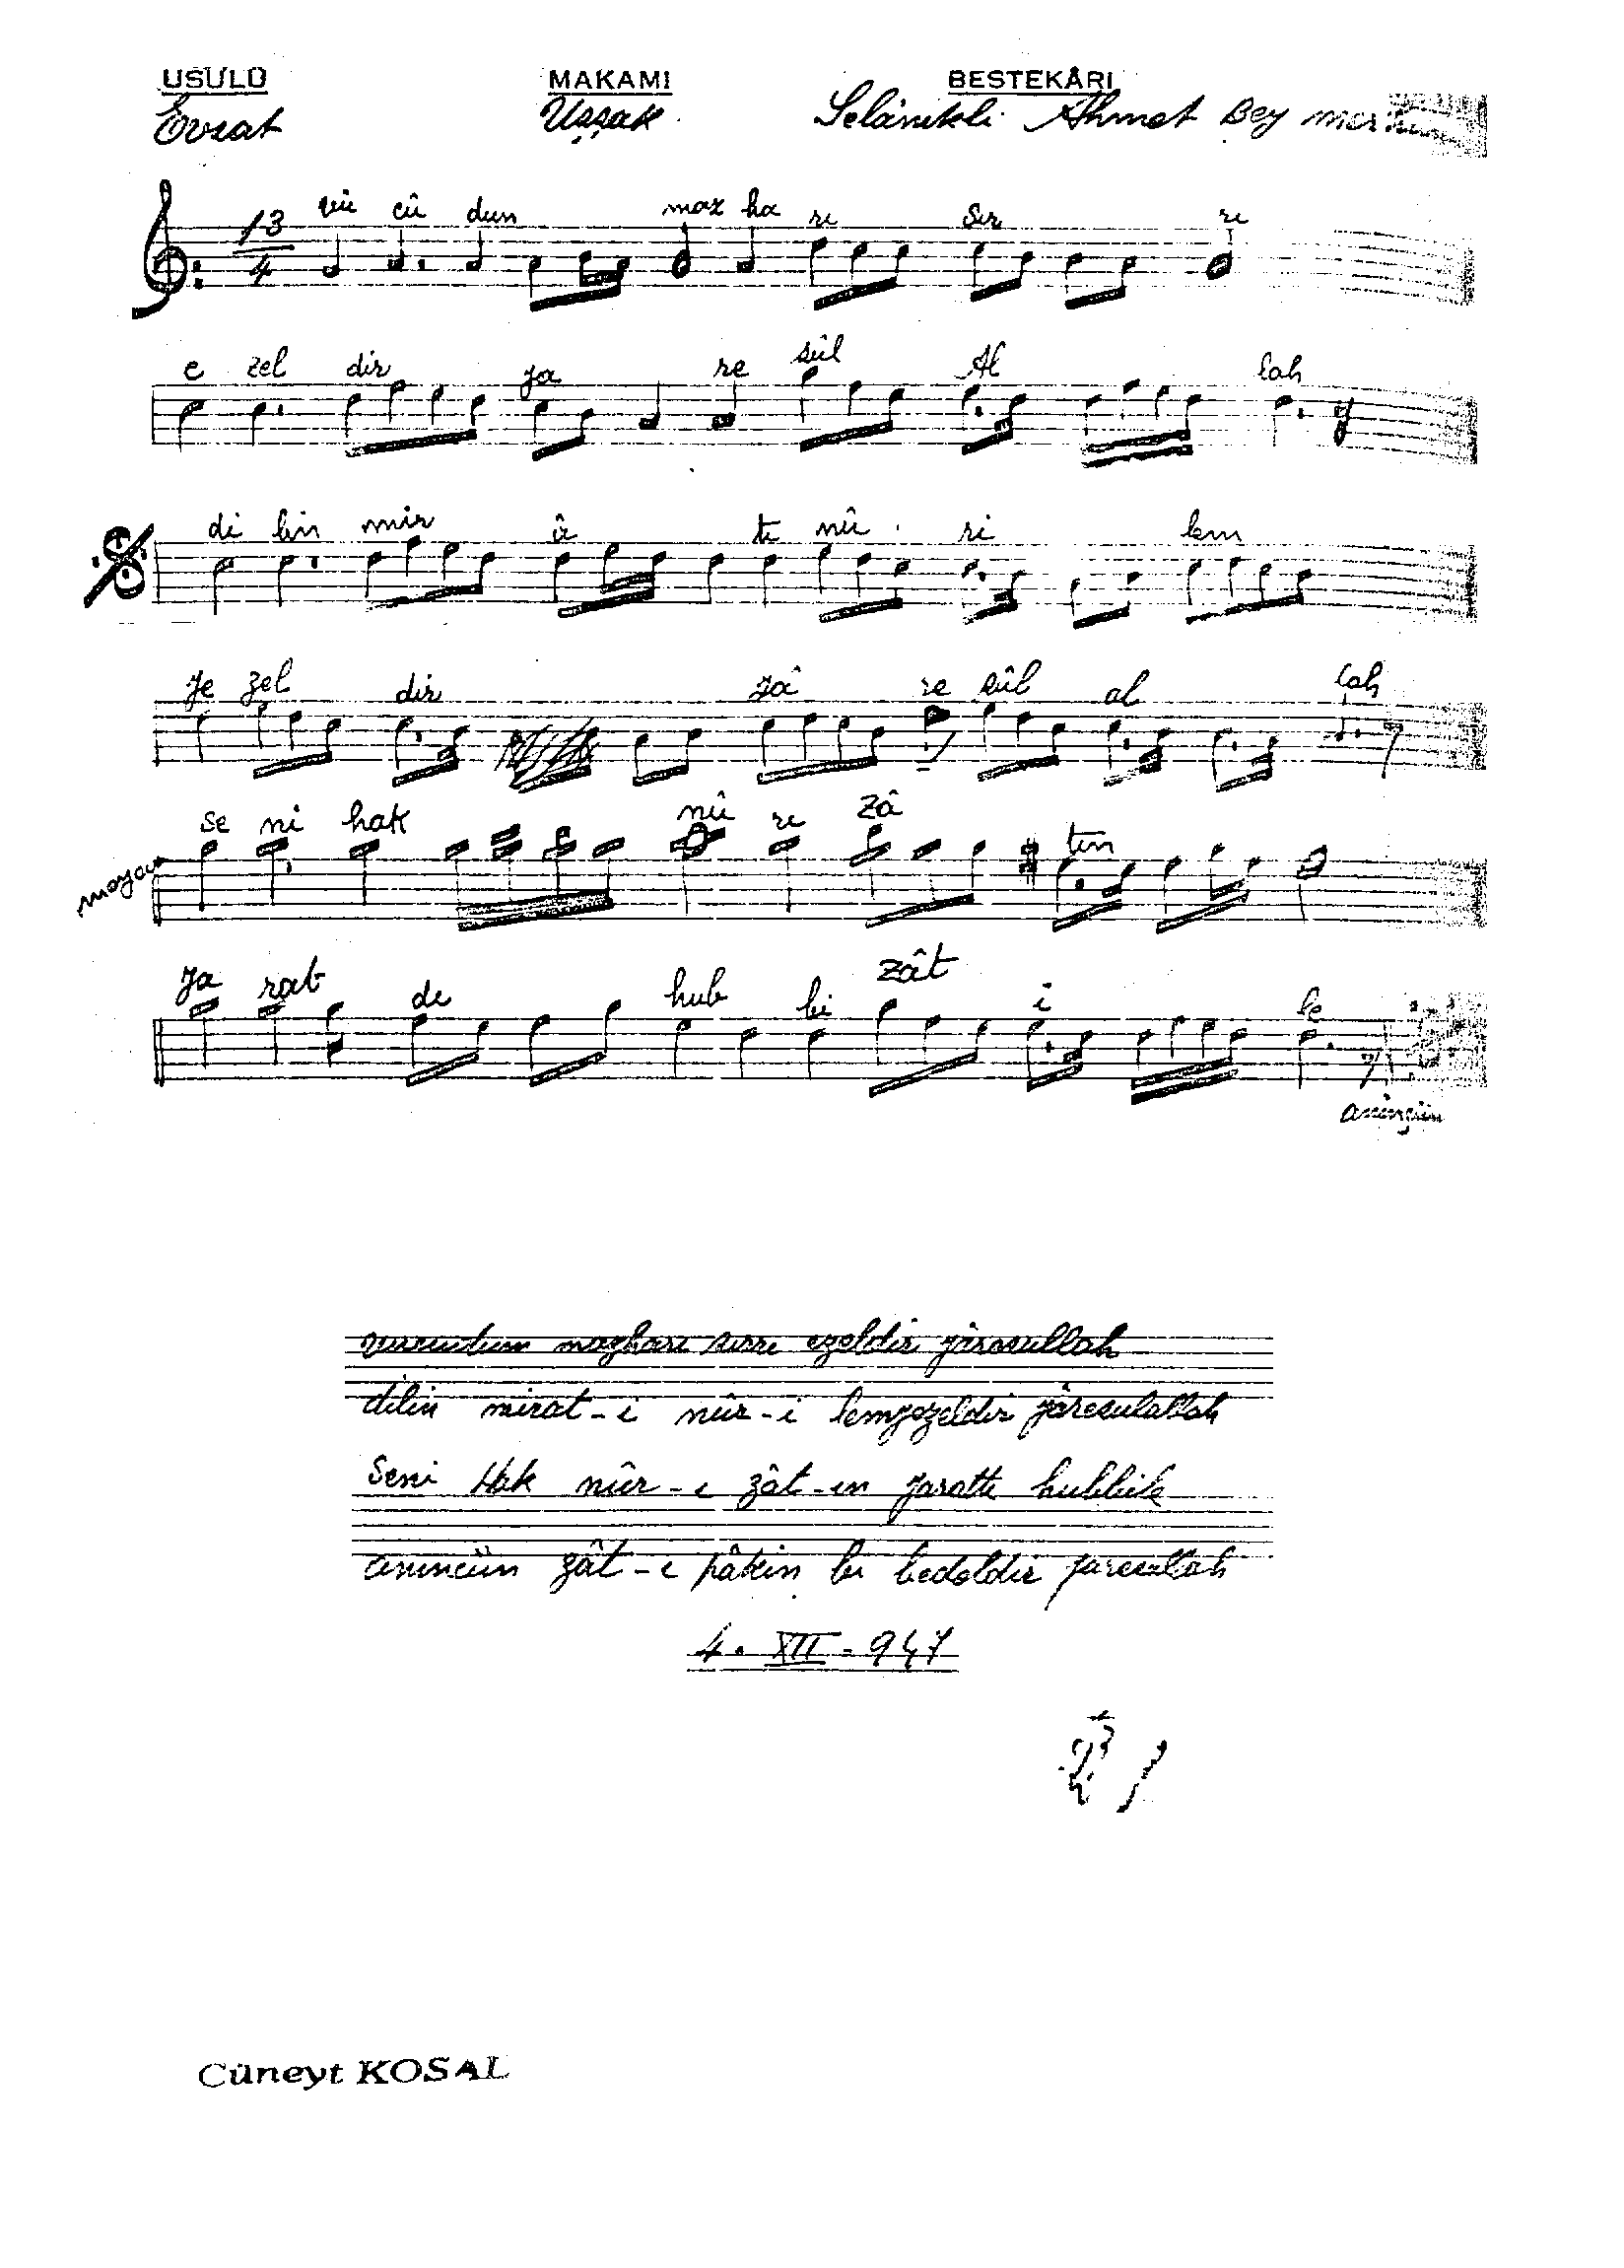 USULÜ MAKAMI BESTEKÂRI
Evsat Uşşak Selânikli Ahmet Bey
13
4
vü cü dun maz ha rı sır rı
e zel dir ya re sûl Al lah
di lin mir â tı nû ri lem
ye zel dir yâ re sûl al lah
se ni hak nû rı zâ tın
ya rat dı hub bi zât i le
anınçün
vucudun mazharı sırrı ezeldir yâresullah
dilin mirat-i nûr-i lemyezeldir yâresulallah
Seni Hak nûr-ı zât-ın yarattı
anınçün zât-ı pâkin bi bedeldir yaresullah
4. XII - 947
Cüneyt KOSAL